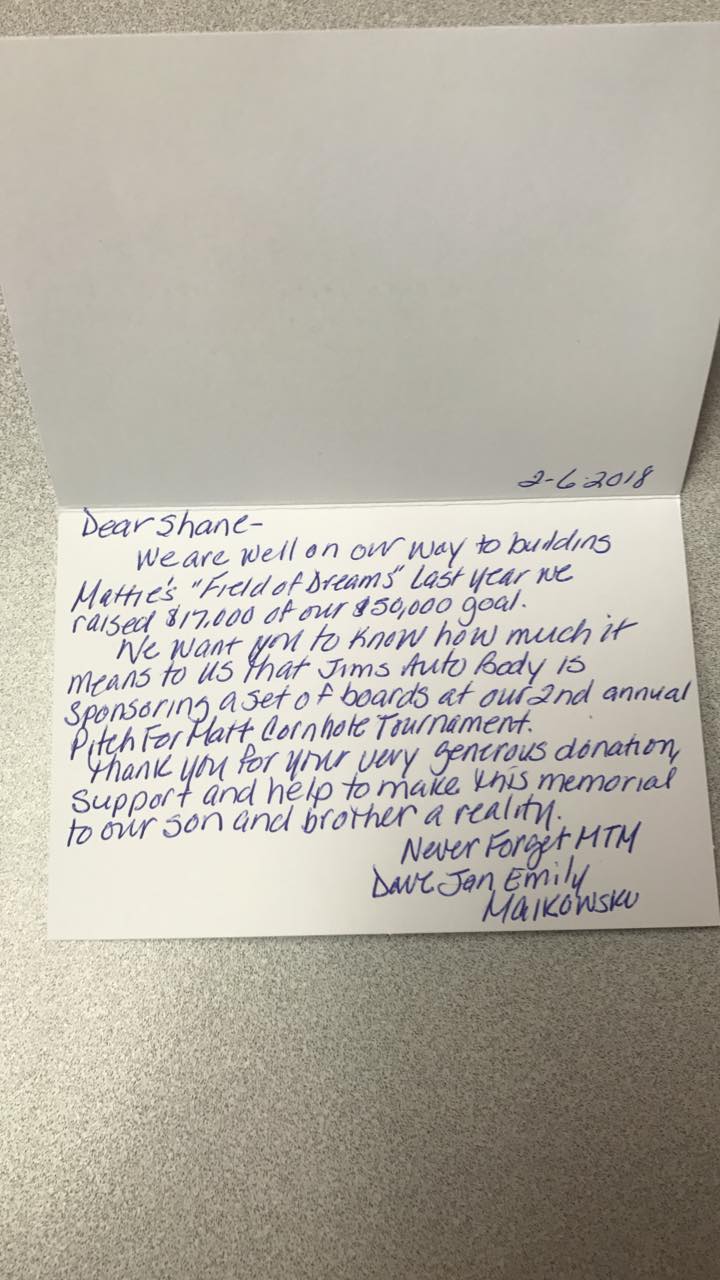 2-6-2018
Dear Shane-
We are well on our way to building
Mattie's "Field of Dreams" Last year we
raised $17,000 of our $50,000 goal.
We want you to know how much it
means to us that Jims Auto Body is
sponsoring a set of boards at our 2nd annual
Pitch For Matt Cornhole Tournament.
Thank you for your very generous donation,
support and help to make this memorial
to our son and brother a reality.
Never Forget MTM
Dave Jan Emily